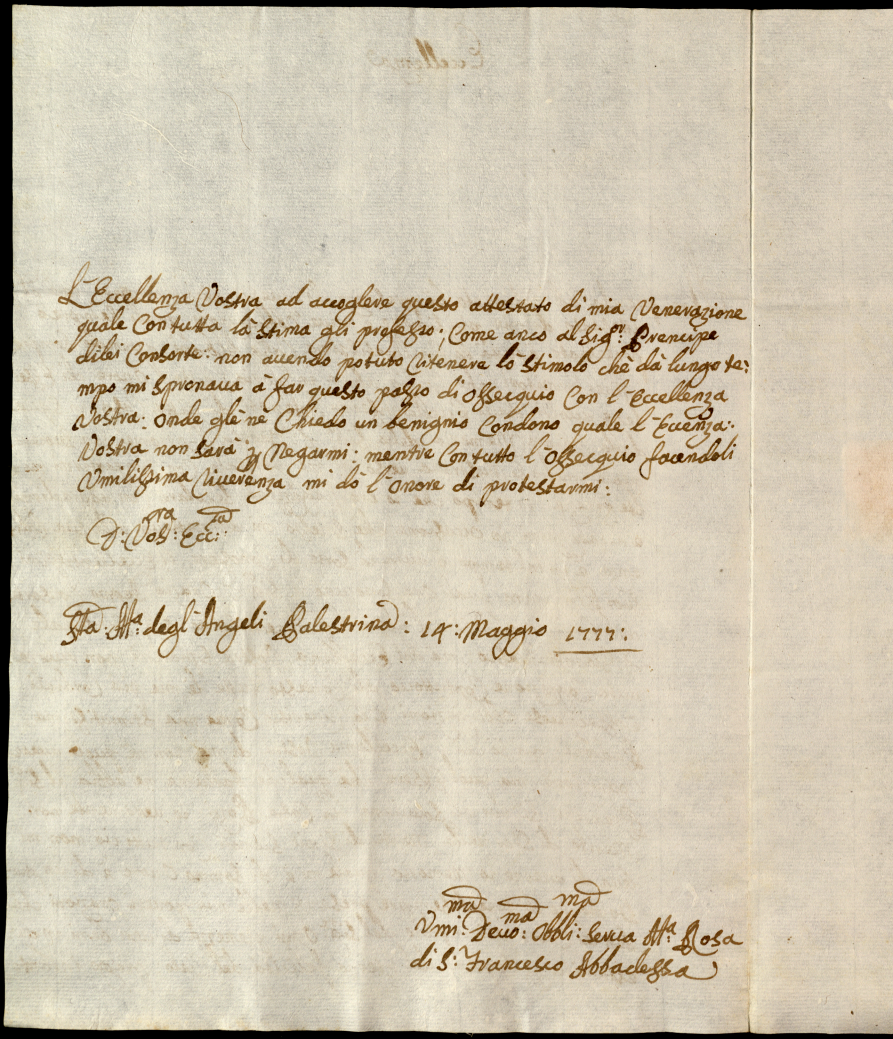 L'Eccellenza Vostra ad accoglere questo attestato di mia Venerazione
quale con tutta là stima gli professo; Come anco al Sig.r Prencipe
di lei Consorte: non auendo potuto ritenere lò stimolo chè dà lungo te:
mpo mi spronaua à far questo passo di ossequio con l'Eccellenza
Vostra: onde gle nè Chiedo un benignio Condono quale l'Eccenza:
Vostra non sarà p negarmi: mentre con tutto l'ossequio facendoli
Vmilissima riuerenza mi dò l'onore di protestarmi:
D: Vos:tra Ecc:za
Sta. Ma: degl'Angeli Palestrina: 14: Maggio 1777:
Vmi:ma Deuo:ma Obbli:ma Serua Ma: Rosa
di S: Francesco Abbadessa